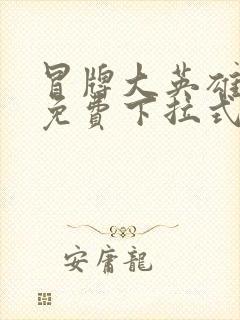 冒牌大英雄
免費下拉式
安庸龍